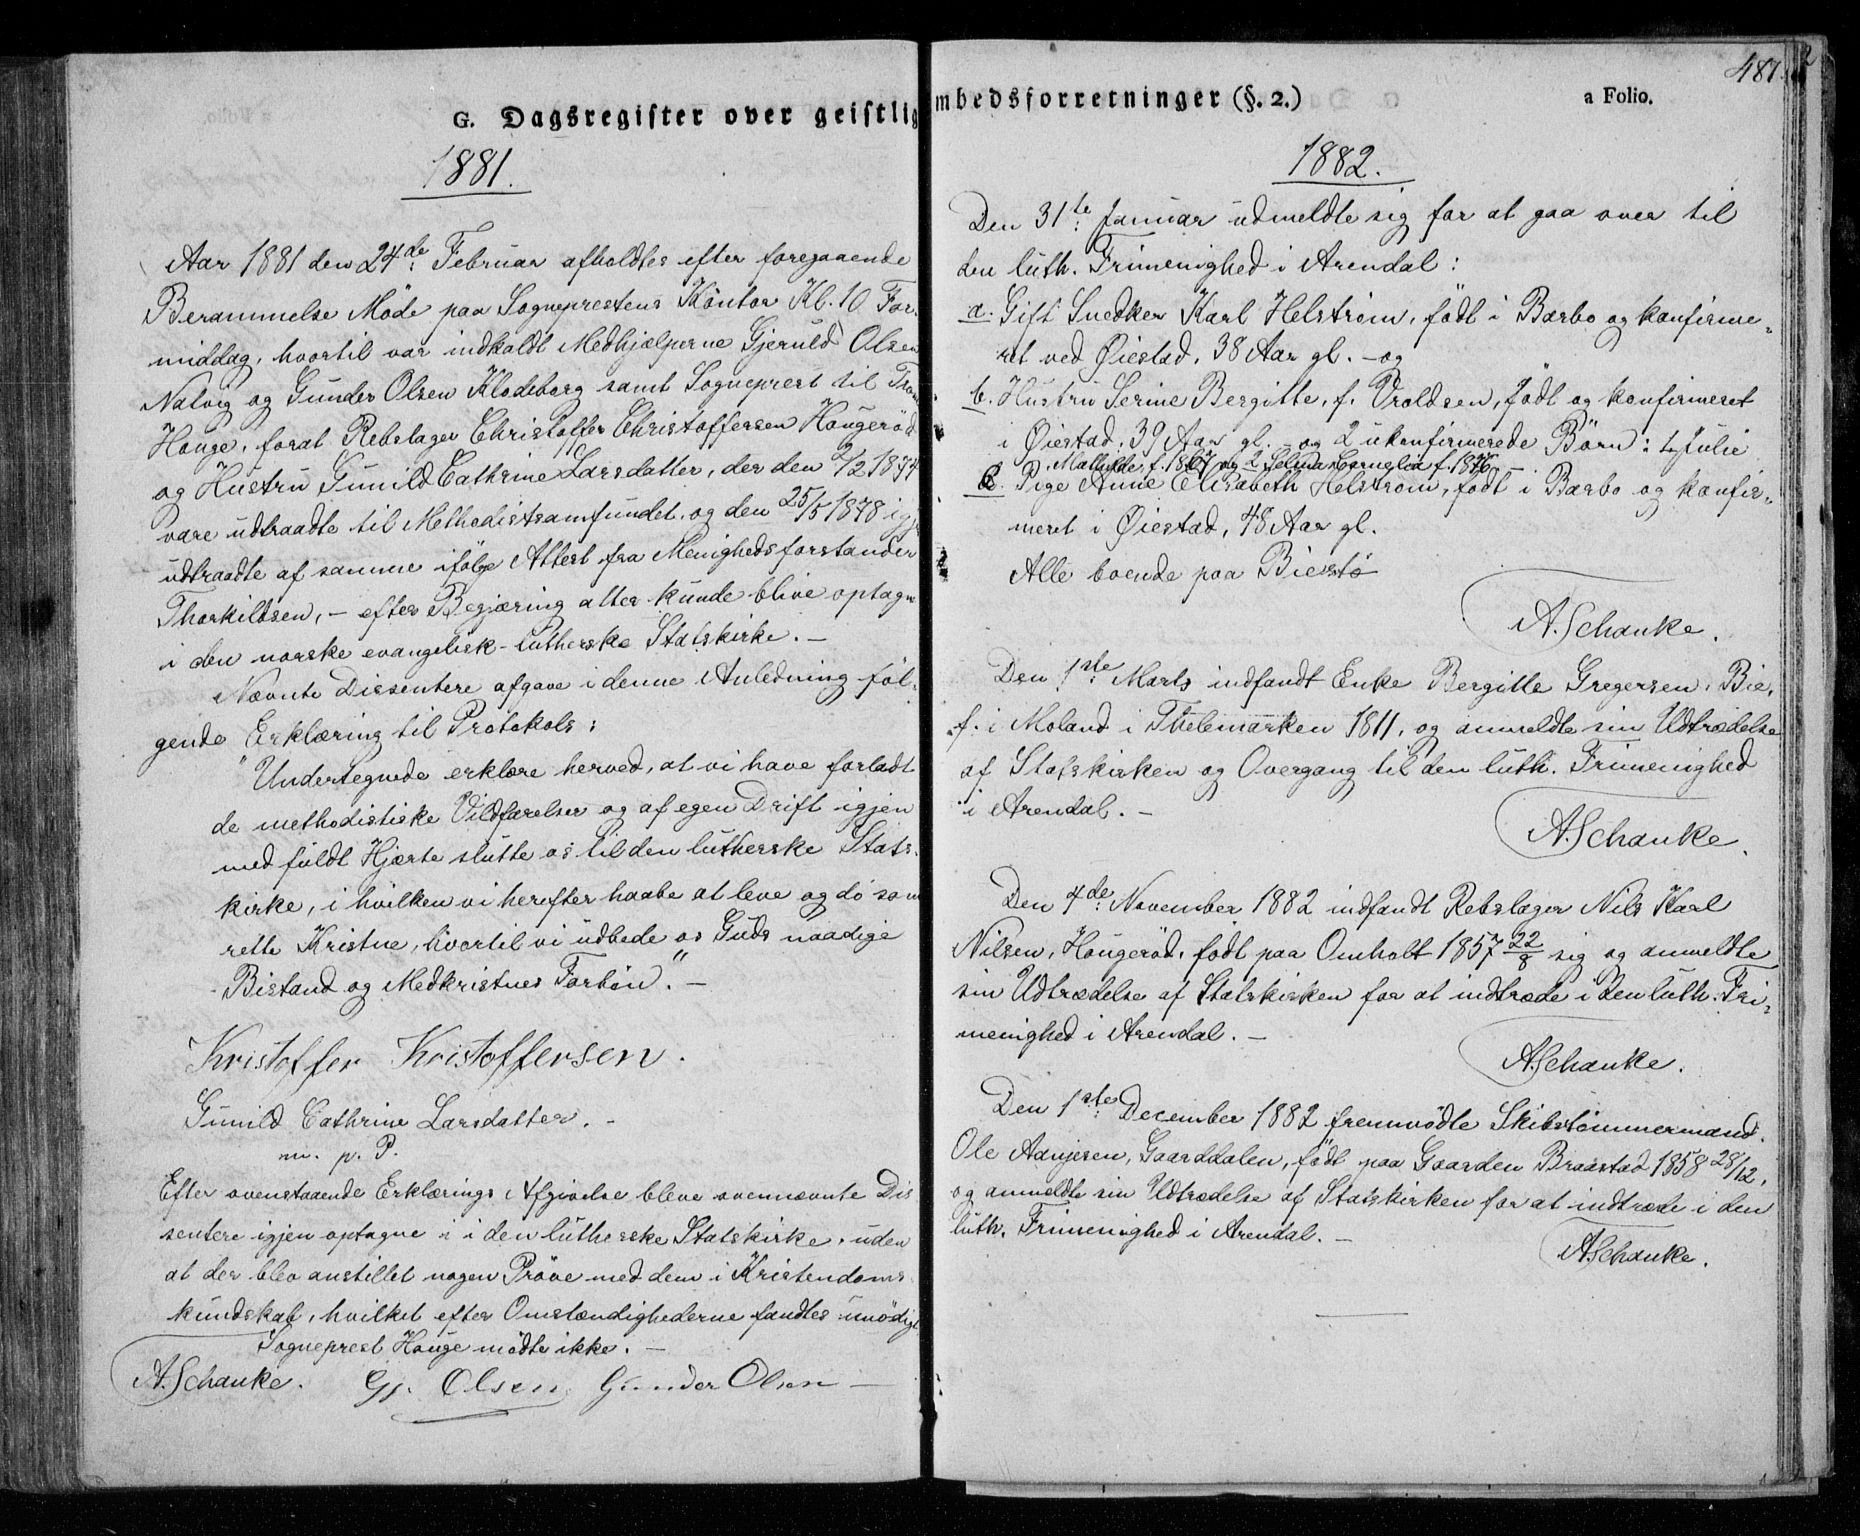 G. Dagsregister over geistlig
1881.
Aar 1881 den 24de Februar afholdtes efter foregaaende
Berammelse Möde paa Sogneprestens Kontor Kl. 10 For-
middag, hvortil var indkaldt Medhjælperne Gjeruld Olsen
Natvig og Gunder Olsen Klodeborg samt Sogneprest til
Houge, forat Rebslager Christoffer Christoffersen Hougeröd
og Hustru Gunild Cathrine Larsdatter, der den 9/2 1874
vare udtraadte til Methodistsamfundet, og den 25/5 1878
udtraadte af samme ifölge Attest fra Menighedsforstander
Thorkildsen, – efter Begjæring atter kunde blive optagne
i den norske evangelisk-lutherske Statskirke. –
Nævnte Dissentere afgave i denne Anledning föl-
gende Erklæring til Protokols:
"Undertegnede erklære herved, at vi have forladt
de methodistiske Vildfarelser og af egen Drift igjen
med fuldt Hjærte slutte os til den lutherske Stats-
kirke, i hvilken vi herefter haabe at leve og dö som
rette Kristne, hvortil vi udbede os Guds naadige
Bistand og Medkristnes Forbön". –
Kristoffer Kristoffersen.
Gunild Cathrine Larsdatter. –
m. p. P.
Efter ovenstaaende Erklærings Afgivelse bleve ovennævnte Dis
sentere igjen optagne i i den lutherske Statskirke, uden
at der blev anstillet nogen Pröve med dem i Kristendoms-
kundskab, hvilket efter Omstændighederne fandtes unödigt
Sogneprest Houge mödte ikke. –
A. Schanke. Gj. Olsen Gunder Olsen –
487
mbedsforretninger (§. 2.) a Folio.
1882.
Den 31te Januar udmeldte sig for at gaa over til
den luth. Frimenighed i Arendal:
a. Gift Snedker Karl Helström, födt i Barbo og konfirme-
ret ved Öiestad, 38 Aar gl. – og
b. Hustru Serine Bergitte, f. Vroldsen, födt og konfirmeret
i Öiestad, 39 Aar gl. – og 2 ukonfirmerede Börn: 1. Julie
Mathilde f. 1867 og 2 Selma Cornelia f. 1876
c. Pige Anne Elisabeth Helström, födt i Barbo og konfir-
meret i Öiestad, 48 Aar gl.
Alle boende paa Biestö
A. Schanke.
Den 1ste Marts indfandt Enke Bergitte Gregersen, Bie,
f. i Moland i Thelemarken 1811, og anmeldte sin Udtrædelse
af Statskirken og Overgang til den luth. Frimenighed
i Arendal. –
A. Schanke.
Den 4de November 1882 indfandt Rebslager Nils Karl
Nilsen, Hougeröd, födt paa Omholt 1857 22/8 sig og anmeldte
sin Udtrædelse af Statskirken for at indtræde i den luth. Fri-
menighed i Arendal. –
A. Schanke.
Den 1ste December 1882 fremmödte Skibstömmermand
Ole Aanjesen, Gaarddalen, födt paa Gaarden Braastad 1858 28/12,
og anmeldte sin Udtrædelse af Statskirken for at indtræde i den
luth. Frimenighed i Arendal. –
A. Schanke.